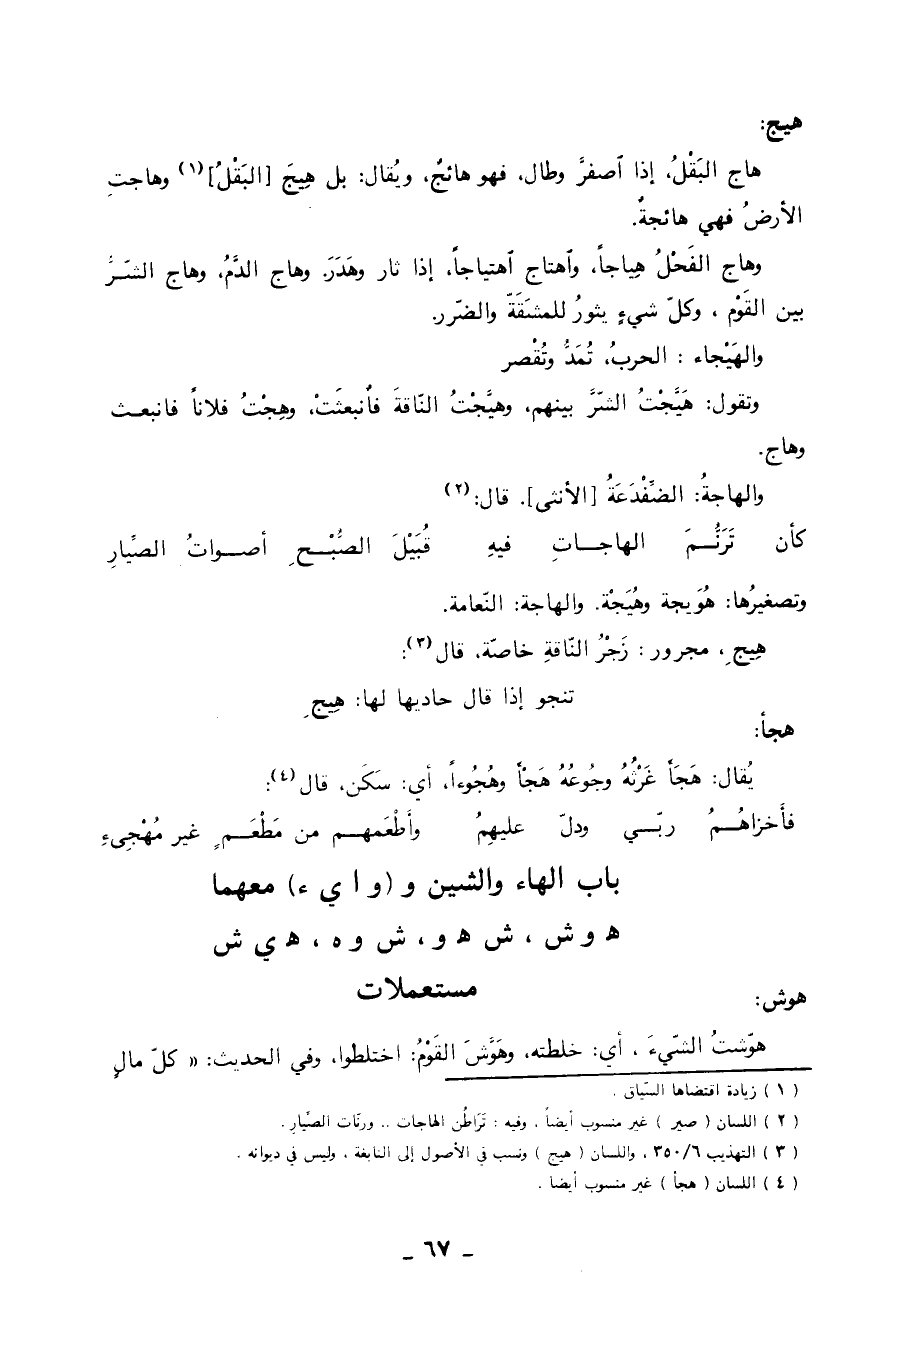 هيج:
هاج البَقْلُ، إذا آصفرَّ وطال، فهو هائجٌ، ويُقال: بل هِيجَ [البَقْلُ](١) وهاجتِ
الأرضُ فهي هائجةٌ.
وهاج الفَحْلُ هِياجاً، وآهتاج آهتياجاً، إذا ثار وهَدَرَ. وهاج الدَّمُ، وهاج الشـرُّ
بين القَوْم ، وكلّ شيءٍ يثورُ للمشَقَةّ والضّرر.
والهَيْجاء : الحربُ، تُمَدُّ وتُقْصر
وتقول: هَيَّجْتُ الشّرَّ بينهم، وهيَّجْتُ النّاقةَ فآنبعثَتْ، وهِجْتُ فلاناً فانبعـث
وهاج.
والهاجةُ: الضِّفْدَعَةُ [الأنثى]. قال:(٢)
كأن تَرَنُّـمَ الهاجـاتِ فيهِ قُبَيْلَ الصُّبْـحِ أصـواتُ الصِّيارِ
وتصغيرُها: هُوَيجة وهُيَجْة. والهاجة: النّعامة.
هِيجِ، مجرور : زَجْرُ النّاقةِ خاصّة، قال(٣):
تنجو إذا قال حاديها لها: هِيجِ
هجأ:
يُقال: هَجَأَ غَرْثُهُ وجُوعُهُ هَجْأً وهُجُوءاً، أي: سَكَن، قال(٤):
فأَخزاهُـمُ ربّـي ودلّ عليهِمُ وأَطْعَمهـم من مَطْعَـمٍ غير مُهْجِيءِ
باب الهاء والشين و (و ا ي ء) معهما
ه و ش ، ش ه و ، ش و ه ، ه ي ش
مستعملات
هوش:
هوّشتُ الشّيءَ ، أي: خلطته، وهَوَّشَ القَوْمُ: اختلطوا، وفي الحديث: « كلّ مالٍ
( ١ ) زيادة اقتضاها السّياق .
( ٢ ) اللسان ( صير ) غير منسوب أيضاً ، وفيه : تَرَاطُن الهاجات .. ورنّات الصِّيار .
( ٣ ) التهذيب ٦/ ٣٥٠ ، واللسان ( هيج ) ونسب في الأصول إلى النابغة ، وليس في ديوانه .
( ٤ ) اللسان ( هجأ ) غير منسوب أيضا .
ـ ٦٧ ـ